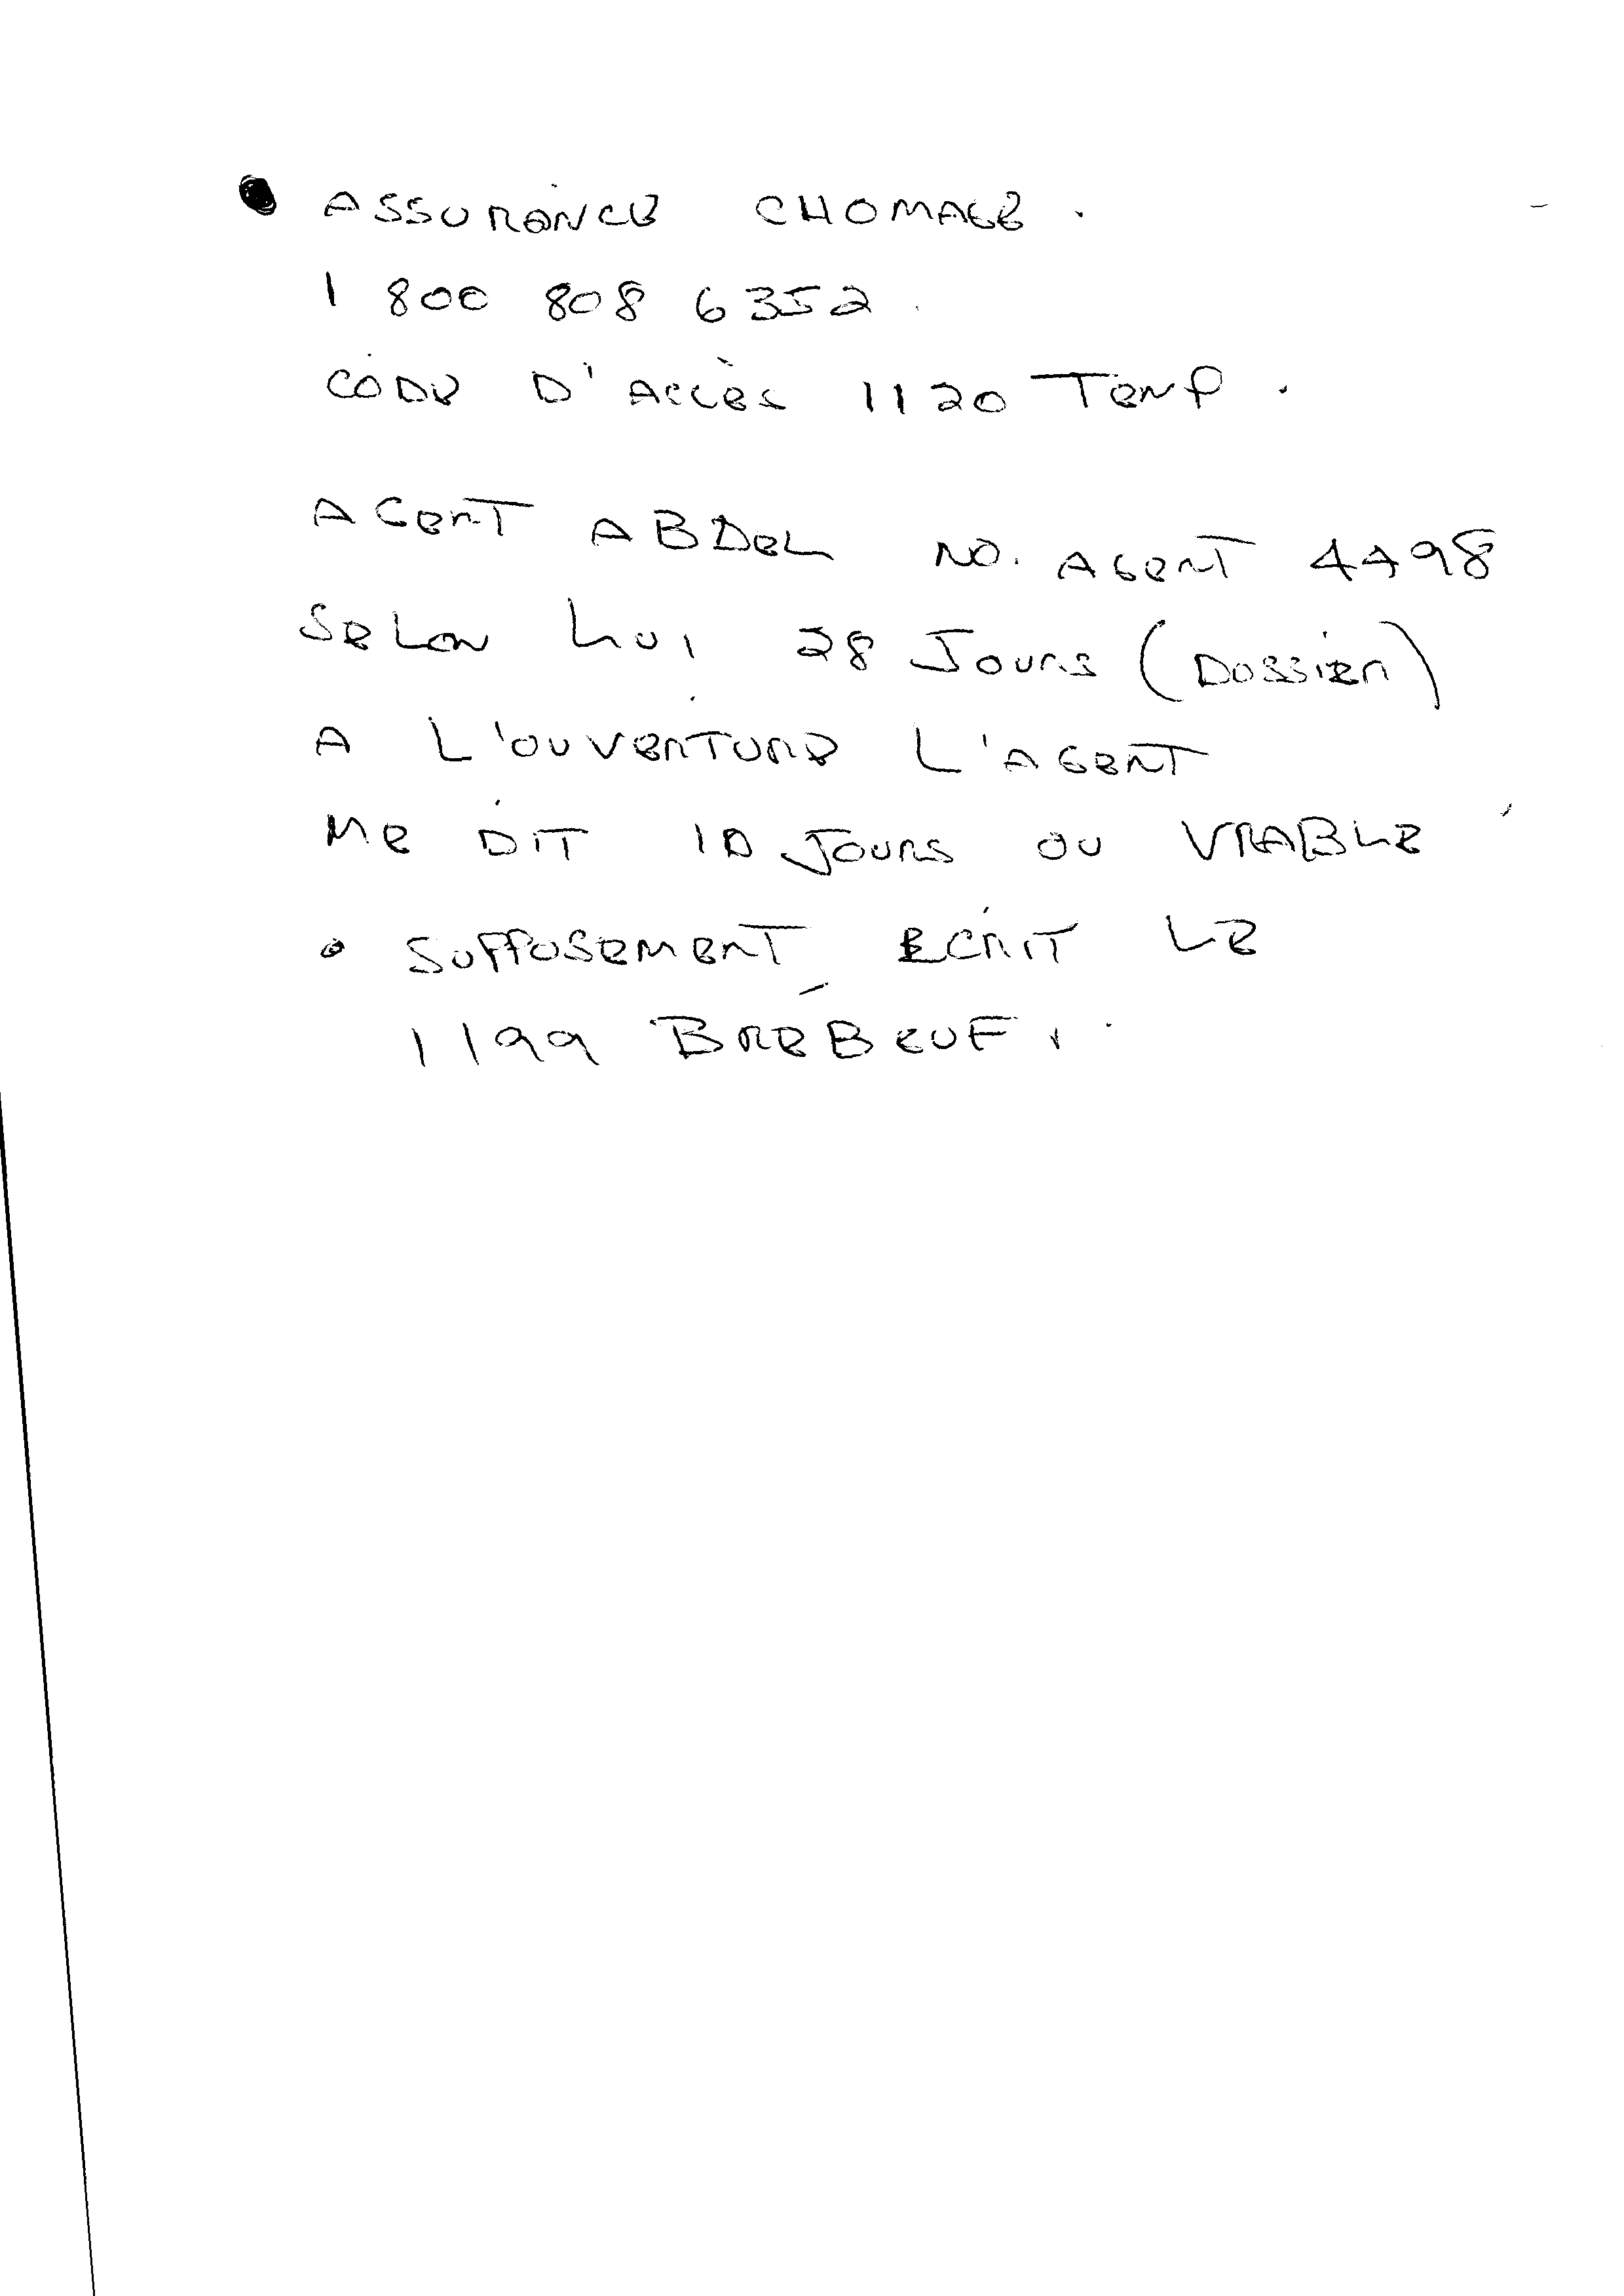 • ASSURANCE CHOMAGE.
1 800 808 6352.
CODE D'ACCÈS 1120 TEMP.
AGENT ABDEL NO. AGENT 4498
SELON LUI 28 JOURS (DOSSIER)
A L'OUVERTURE L'AGENT
ME DIT 10 JOURS OU VRABLE
• SUPPOSEMENT ECRIT LE
1199 BRÉBEUF.